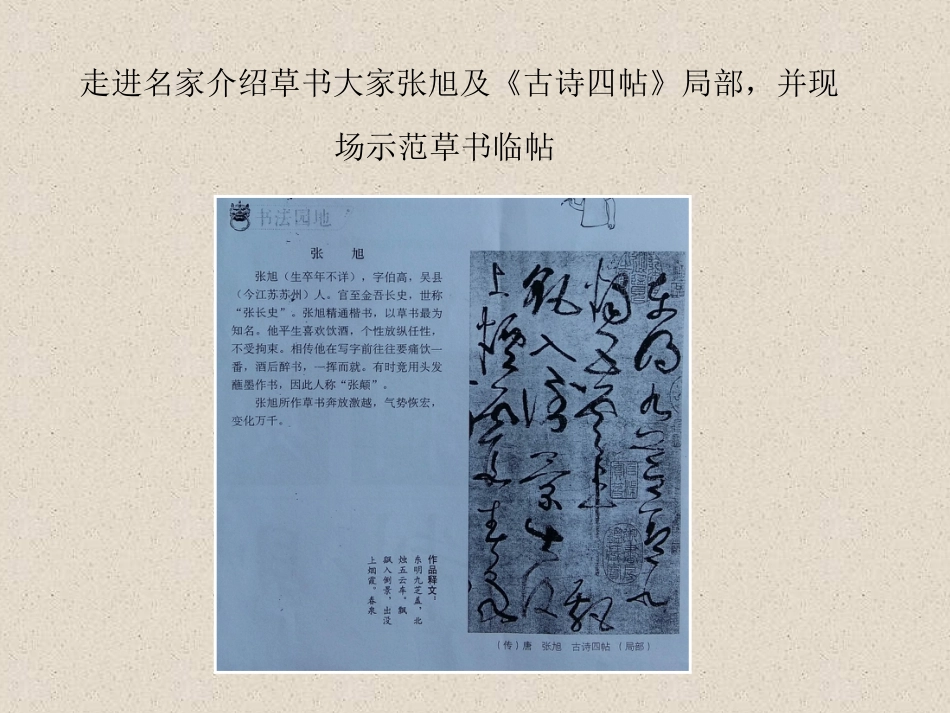 走进名家介绍草书大家张旭及《古诗四帖》局部，并现
场示范草书临帖
书法园地
张 旭
张旭（生卒年不详），字伯高，吴县
（今江苏苏州）人。官至金吾长史，世称
“张长史”。张旭精通楷书，以草书最为
知名。他平生喜欢饮酒，个性放纵任性，
不受拘束。相传他在写字前往往要痛饮一
番，酒后醉书，一挥而就。有时竟用头发
蘸墨作书，因此人称“张颠”。
张旭所作草书奔放激越，气势恢宏，
变化万千。
作品释文：
东明九芝盖，北
烛五云车，飘
飖入倒景，出没
上烟霞。春泉
（传）唐 张旭 古诗四帖（局部）